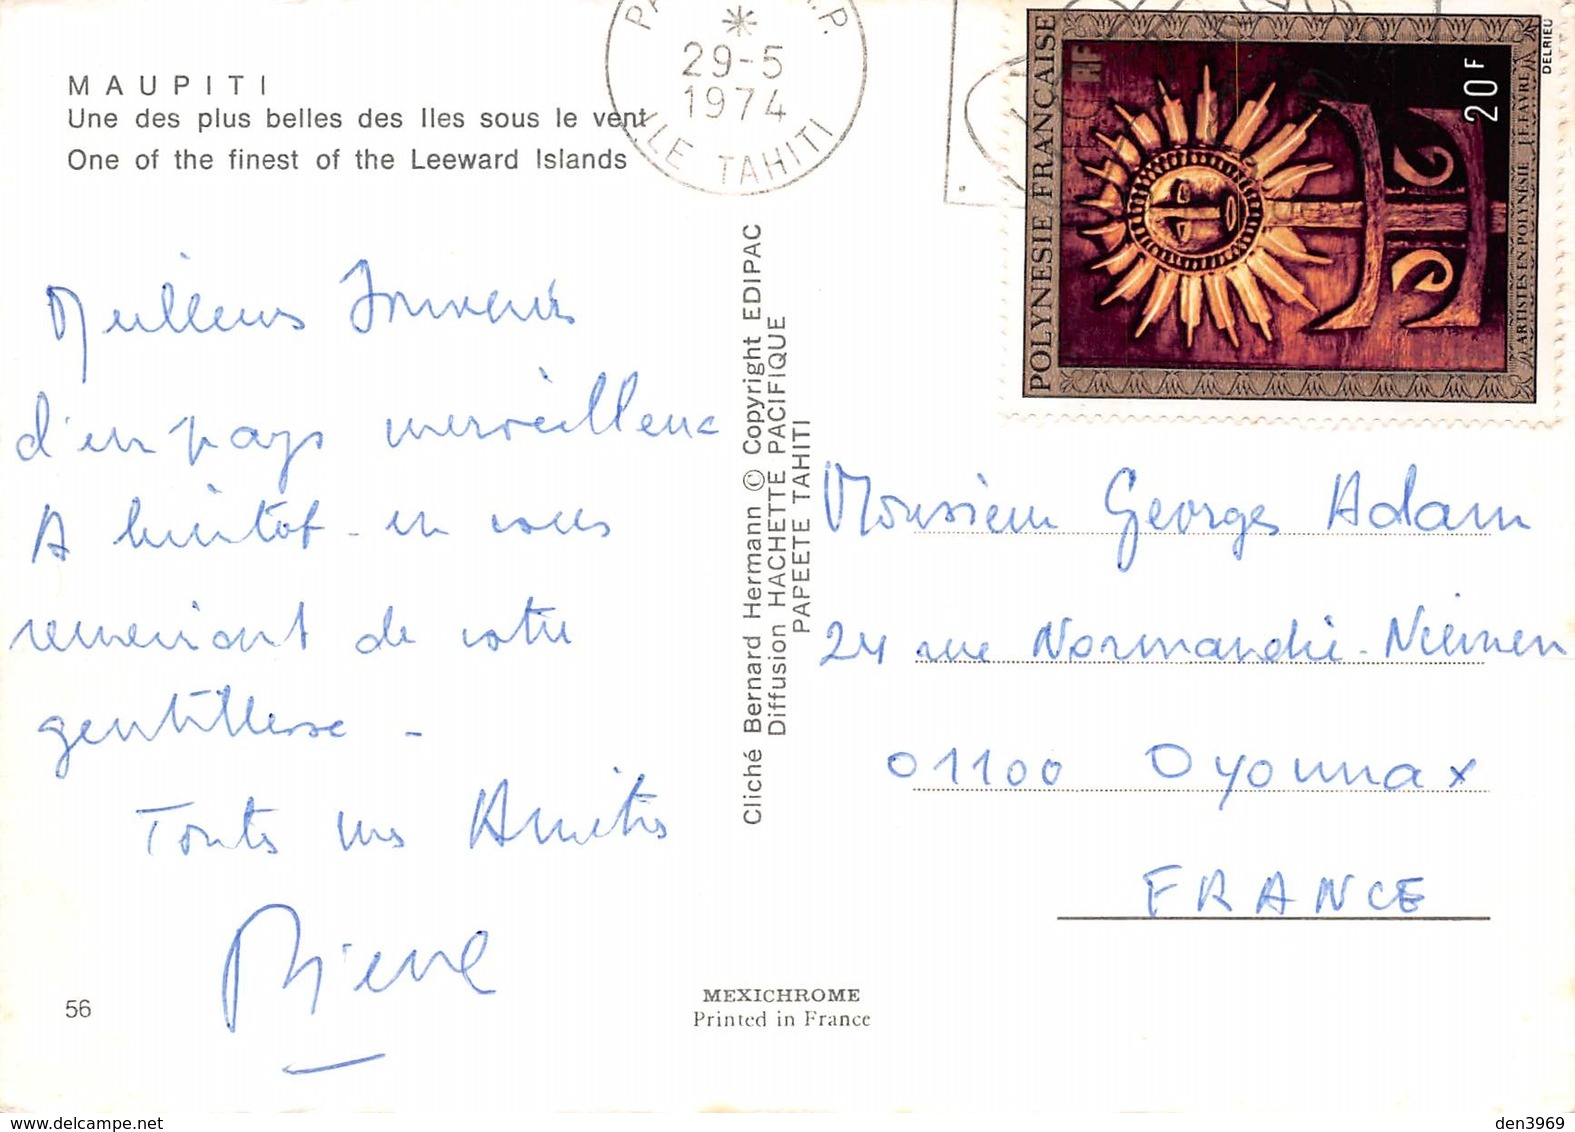 MAUPITI
Une des plus belles des Iles sous le vent
One of the finest of the Leeward Islands
29-5
1974
ILE TAHITI
POLYNESIE FRANÇAISE
RF
20F
ARTISTES EN POLYNÉSIE J.F. FAVRE
DELRIEU
Meilleurs Souvenirs
d'un pays merveilleux
A bientôt - en vous
remerciant de votre
gentillesse -
Toutes mes Amitiés
Pierre
Cliché Bernard Hermann © Copyright EDIPAC
Diffusion HACHETTE PACIFIQUE
PAPEETE TAHITI
Monsieur Georges Adam
24 rue Normandie-Niemen
01100 Oyonnax
FRANCE
56
MEXICHROME
Printed in France
den3969